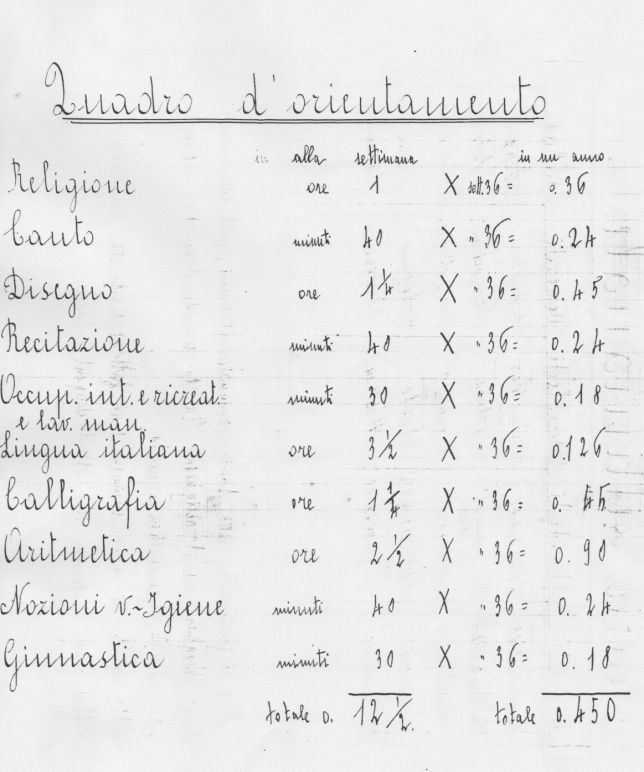 Quadro d'orientamento
in alla settimana in un anno
Religione ore 1 X sett. 36 = o. 36
Canto minuti 40 X " 36 = o. 24
Disegno ore 1 1/4 X " 36 = o. 45
Recitazione minuti 40 X " 36 = o. 24
Occup. int. e ricreat. minuti 30 X " 36 = o. 18
e lav. man.
Lingua italiana ore 3 1/2 X " 36 = o. 126
Calligrafia ore 1 1/4 X " 36 = o. 45
Aritmetica ore 2 1/2 X " 36 = o. 90
Nozioni v.~Igiene minuti 40 X " 36 = o. 24
Ginnastica minuti 30 X " 36 = o. 18
totale o. 12 1/2. totale o. 450